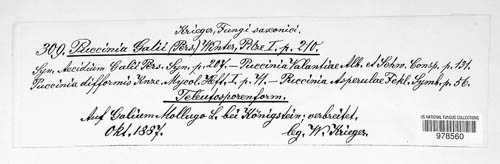 Krieger, Fungi saxonici.
309. Puccinia Galii (Pers.) Winter, Pilze I. p. 210.
Syn. Aecidium Galii Pers. Syn. p. 207. – Puccinia Valantiae Alb. et Schw. Consp. p. 131.
Puccinia difformis Knze. Mycol. Heft I. p. 71. – Puccinia Asperulae Fckl. Symb. p. 56.
Teleutosporenform.
Auf Galium Mollugo L. bei Königstein; verbreitet.
Okt. 1887. leg. W. Krieger.
US NATIONAL FUNGUS COLLECTIONS
978560